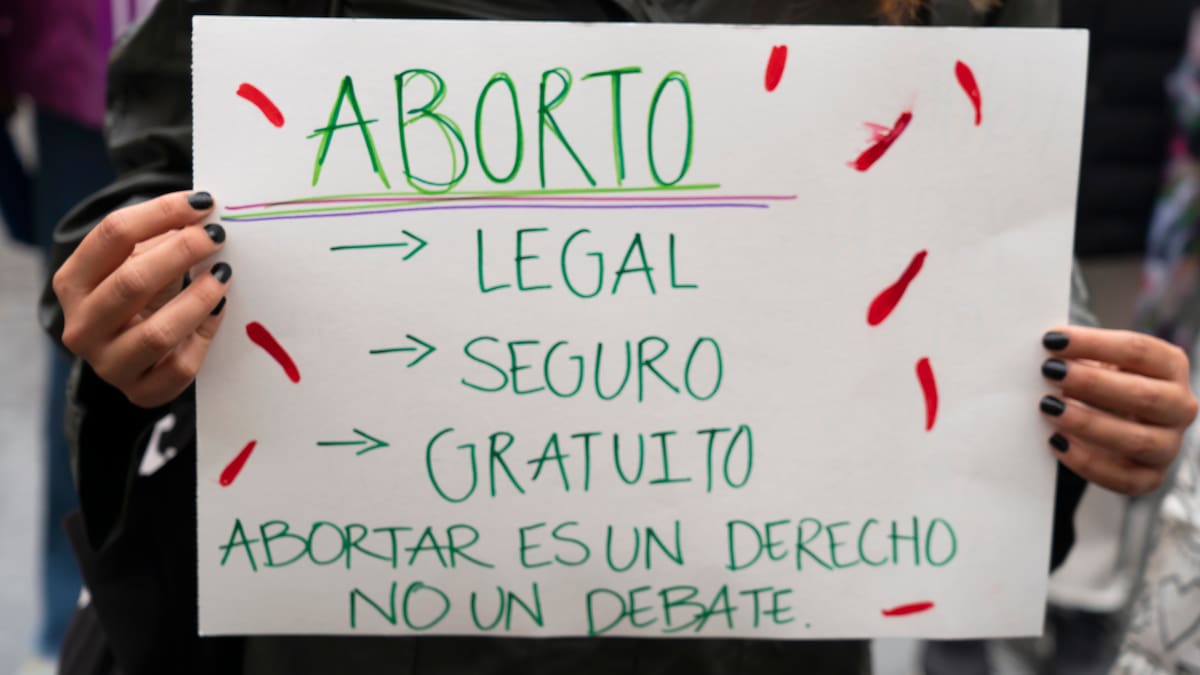 ABORTO
→ LEGAL
→ SEGURO
→ GRATUITO
ABORTAR ES UN DERECHO
NO UN DEBATE.